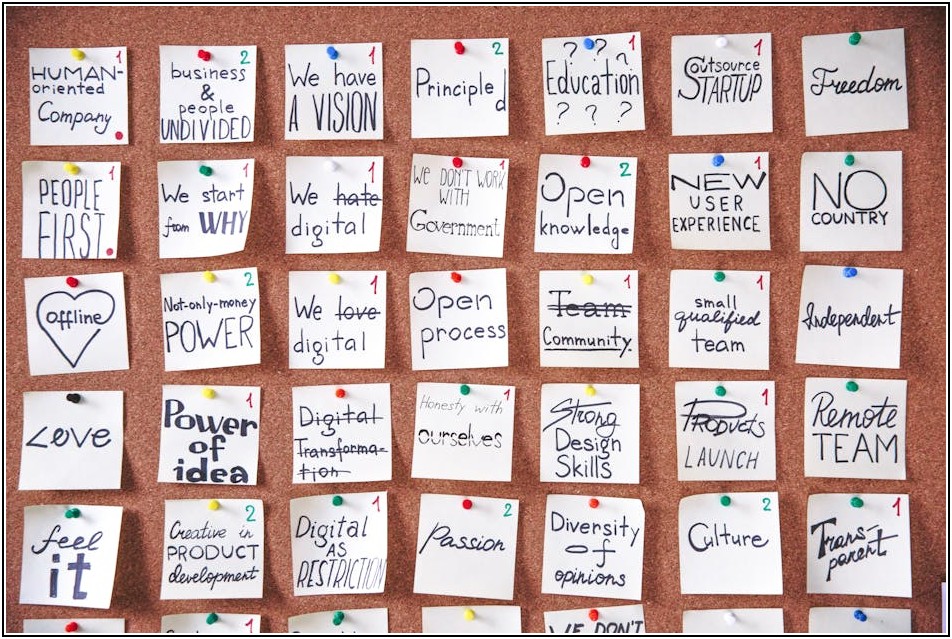 1
HUMAN-
oriented
Company
2
business
&
people
UNDIVIDED
1
We have
A VISION
2
Principled
1
? ? ?
Education
? ? ?
1
Outsource
STARTUP
Freedom
1
PEOPLE
FIRST
1
We start
from WHY
1
We hate
digital
1
WE DON'T WORK
WITH
Government
2
Open
knowledge
1
NEW
USER
EXPERIENCE
NO
COUNTRY
offline
2
Not-only-money
POWER
1
We love
digital
Open
process
1
Team
Community
1
small
qualified
team
Independent
Love
1
Power
of
idea
Digital
Transforma-
tion
1
Honesty with
ourselves
Strong
Design
Skills
1
Products
LAUNCH
Remote
TEAM
feel
it
2
Creative in
PRODUCT
development
1
Digital
AS
RESTRICTION
2
Passion
Diversity
of
opinions
2
Culture
1
Trans-
parent
WE DON'T